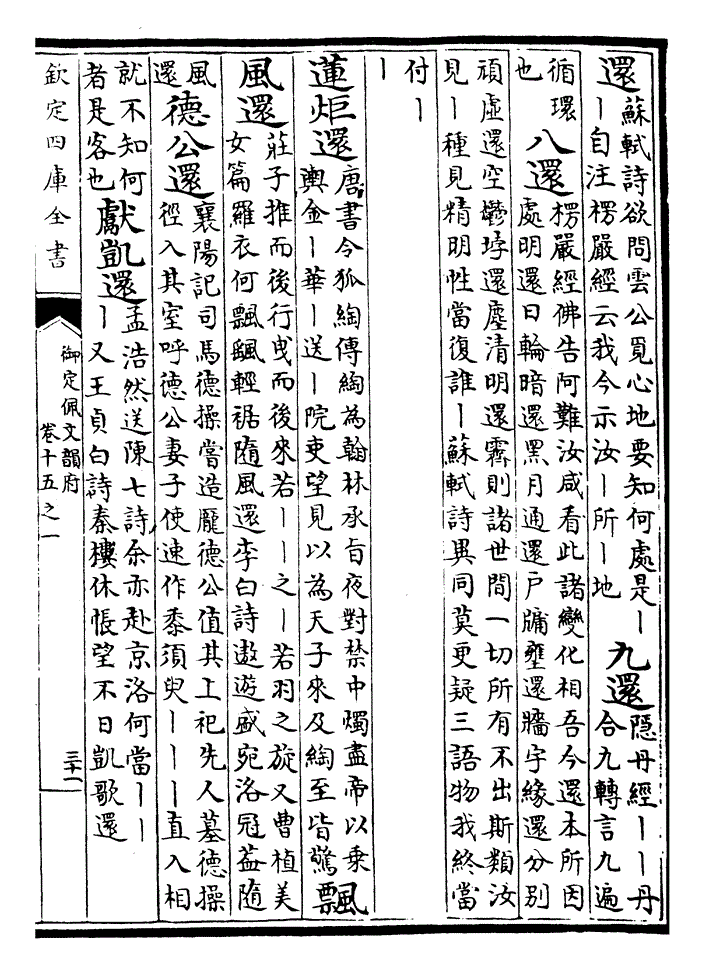 還蘇軾詩欲問雲公覓心地要知何處是丨九還隱丹經丨丨丹
丨自注楞嚴經云我今示汝丨所丨地合九轉言九遍
循環八還楞嚴經佛告阿難汝咸看此諸變化相吾今還本所因
也處明還日輪暗還黑月通還戶牖壅還牆宇緣還分別
頑虛還空鬱㘄還塵清明還霽則諸世間一切所有不出斯類汝
見丨種見精明性當復誰丨蘇軾詩異同莫更疑三語物我終當
付丨
丨
蓮炬還唐書令狐綯傳綯為翰林承旨夜對禁中燭盡帝以乗飄
輿金丨華丨送丨院吏望見以為天子來及綯至皆驚
風還莊子推而後行曵而後來若丨丨之丨若羽之旋又曹植美
女篇羅衣何飄颻輕裾隨風還李白詩遨遊盛宛洛冠葢隨
風德公還襄陽記司馬德操嘗造龐德公值其上祀先人墓德操
還徑入其室呼德公妻子使速作黍須臾丨丨丨直入相
就不知何獻凱還孟浩然送陳七詩余亦赴京洛何當丨丨
者是客也丨又王貞白詩秦樓休悵望不日凱歌還
欽定四庫全書
御定佩文韻府
卷十五之一
三十一